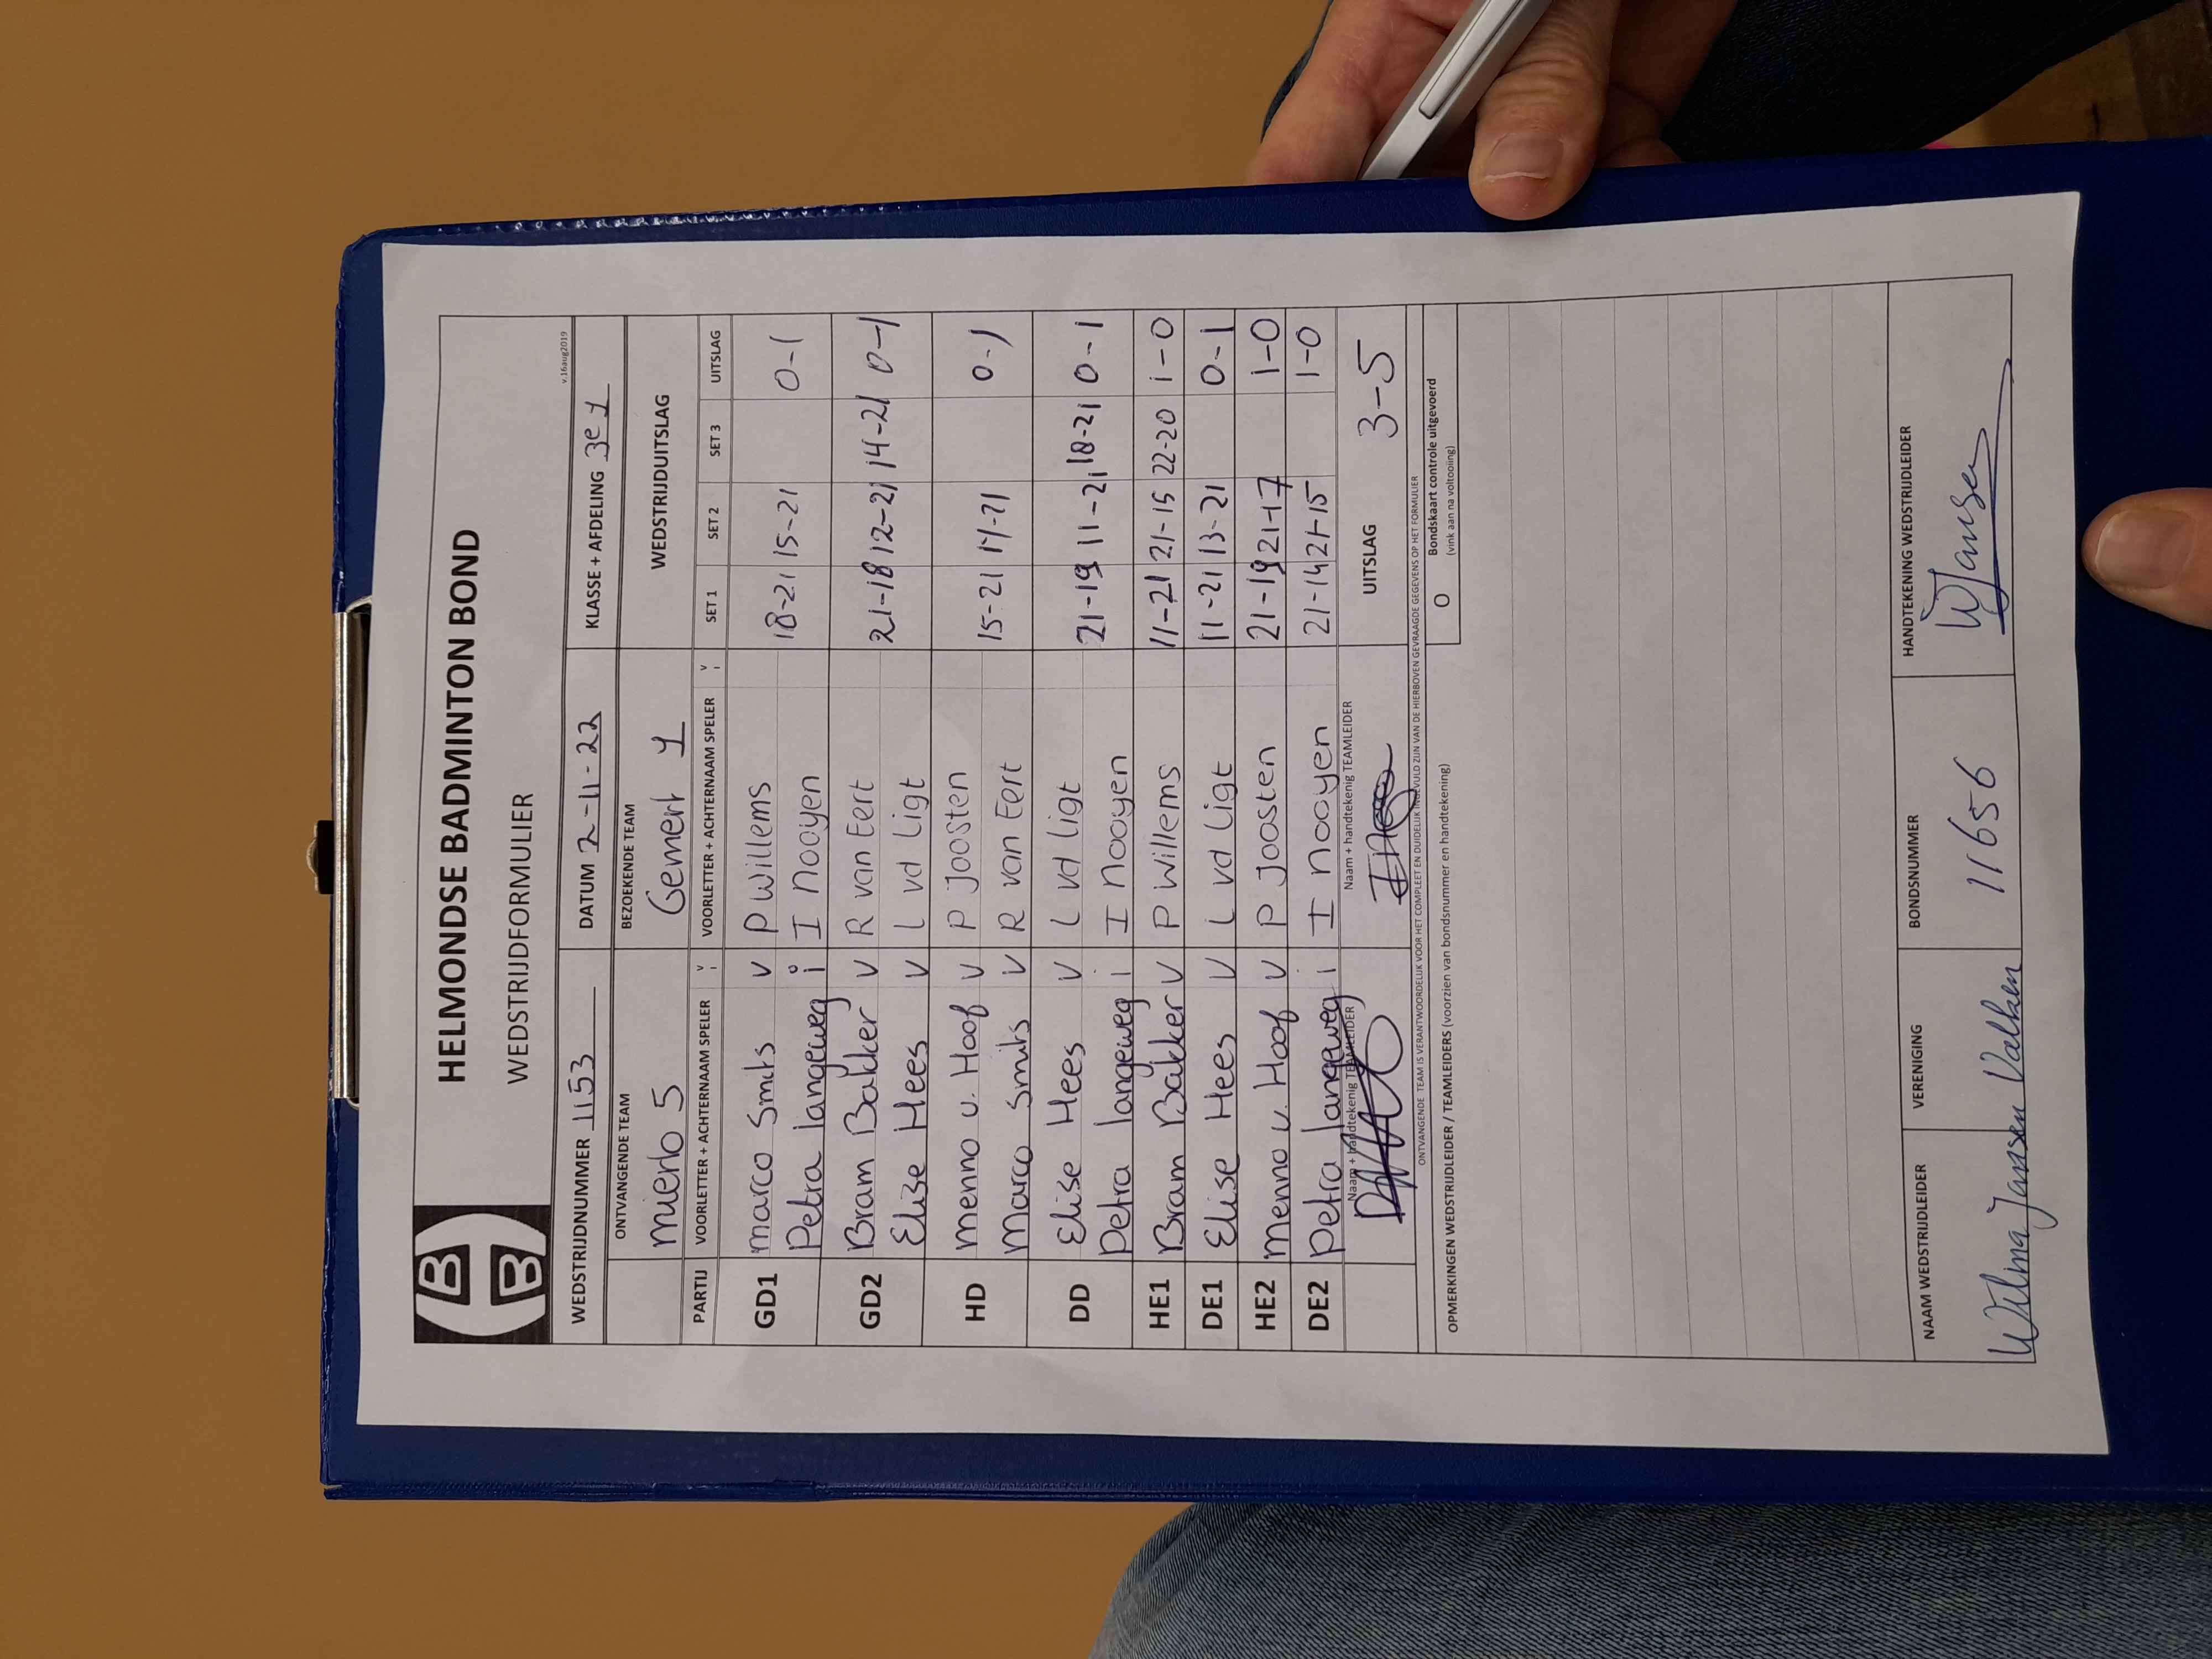 HELMONDSE BADMINTON BOND
WEDSTRIJDFORMULIER
v.16aug2019
WEDSTRIJDNUMMER 1153 DATUM 2-11-22 KLASSE + AFDELING 3e 1
ONTVANGENDE TEAM BEZOEKENDE TEAM WEDSTRIJDUITSLAG
mierlo 5 Gemert 1
PARTIJ VOORLETTER + ACHTERNAAM SPELER V i VOORLETTER + ACHTERNAAM SPELER V i SET 1 SET 2 SET 3 UITSLAG
GD1 marco Smits V P Willems 18-21 15-21 0-1
Petra langeweg i I Nooyen
GD2 Bram Bakker V R van Eert 21-18 12-21 14-21 0-1
Elise Hees V L vd Ligt
HD menno v. Hoof V P Joosten 15-21 17-21 0-1
Marco Smits V R van Eert
DD Elise Hees V L vd ligt 21-19 11-21 18-21 0-1
Petra langeweg i I Nooyen
HE1 Bram Bakker V P Willems 11-21 21-15 22-20 1-0
DE1 Elise Hees V L vd Ligt 11-21 13-21 0-1
HE2 menno v. Hoof V P Joosten 21-19 21-17 1-0
DE2 Petra langeweg i I Nooyen 21-14 21-15 1-0
Naam + handtekenig TEAMLEIDER Naam + handtekenig TEAMLEIDER UITSLAG 3-5
ONTVANGENDE TEAM IS VERANTWOORDELIJK VOOR HET COMPLEET EN DUIDELIJK INGEVULD ZIJN VAN DE HIERBOVEN GEVRAAGDE GEGEVENS OP HET FORMULIER
O Bondskaart controle uitgevoerd
(vink aan na voltooiing)
OPMERKINGEN WEDSTRIJDLEIDER / TEAMLEIDERS (voorzien van bondsnummer en handtekening)
NAAM WEDSTRIJDLEIDER VERENIGING BONDSNUMMER HANDTEKENING WEDSTRIJDLEIDER
Wilma Jansen Valken 11656 WJansen